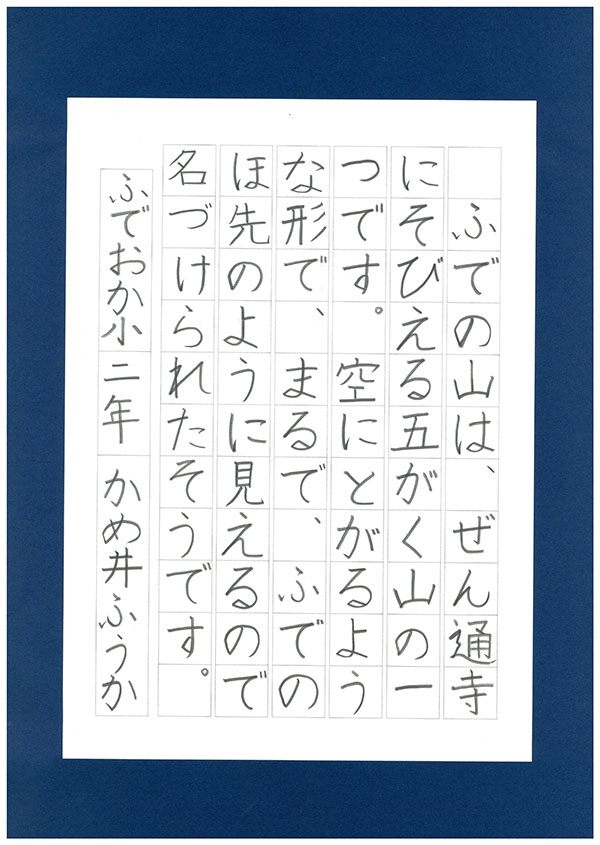 ふでの山は、ぜん通寺
にそびえる五がく山の一
つです。空にとがるよう
な形で、まるで、ふでの
ほ先のように見えるので
名づけられたそうです。
ふでおか小 二年 かめ井ふうか